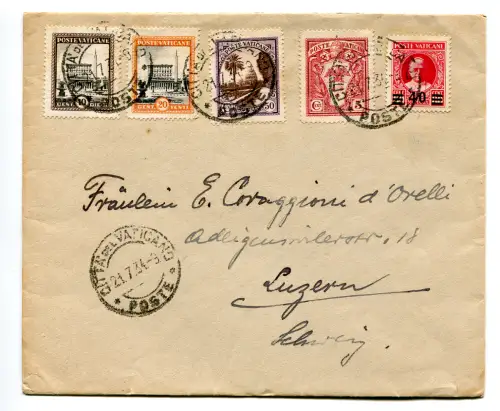 POSTE VATICANE
CENT 10 DIECI
POSTE VATICANE
CENT 20 VENTI
POSTE VATICANE
50
POSTE VATICANE
POSTE VATICANE
40
POSTE
POSTE
POSTE
Fräulein E. Coraggioni d'Orelli
Adligenswilerstr. 18
Luzern
Schweiz
CITTÀ DEL VATICANO
21.7.34-9
* POSTE *